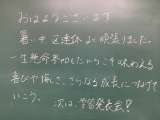 おはようございます
暑い中区連休よく頑張りました。
一生懸命参加したからこそ味わえる
喜びや悔しさ、さらなる成長につなげて
いこう。 次は、学習発表会!